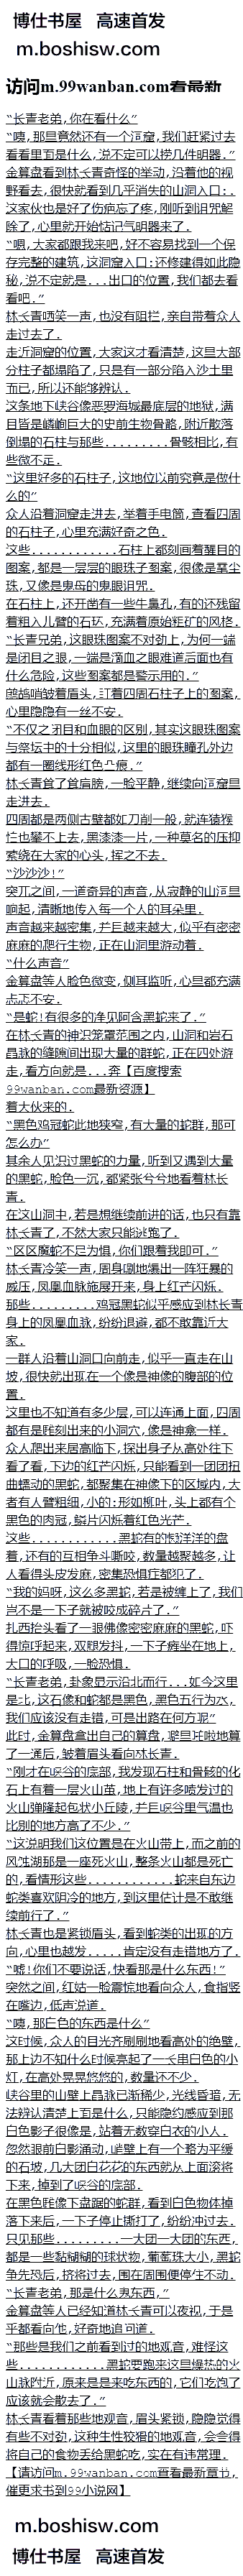 博仕书屋 高速首发
m.boshisw.com
访问m.99wanban.com查看最新
“长青老弟,你在看什么”
“咦,那里竟然还有一个洞窟,我们赶紧过去
看看里面是什么,说不定可以捞几件明器.”
金算盘看到林长青奇怪的举动,沿着他的视
野看去,很快就看到几乎消失的山洞入口:.
这家伙也是好了伤疤忘了疼,刚听到诅咒解
除了,心里就开始惦记气明器来了.
“嗯,大家都跟我来吧,好不容易找到一个保
存完整的建筑,这洞窟入口:还修建得如此隐
秘,说不定就是...出口的位置,我们都去看
看吧.”
林长青哂笑一声,也没有阻拦,亲自带着众人
走过去了.
走近洞窟的位置,大家这才看清楚,这里大部
分柱子都塌陷了,只是有一部分陷入沙土里
而已,所以还能够辨认.
这条地下峡谷像恶罗海城最底层的地狱,满
目皆是嶙峋巨大的史前生物骨骼,附近散落
倒塌的石柱与那些.........骨骸相比,有
些微不足.
“这里好多的石柱子,这地位以前究竟是做什
么的”
众人沿着洞窟走进去,举着手电筒,查看四周
的石柱子,心里充满好奇之色.
这些............石柱上都刻画着醒目的
图案,都是一层层的眼珠子图案,很像是雮尘
珠,又像是鬼母的鬼眼诅咒.
在石柱上,还开凿有一些牛鼻孔,有的还残留
着粗入儿臂的石环,充满着原始粗矿的风格.
“长青兄弟,这眼珠图案不对劲上,为何一端
是闭目之眼,一端是滴血之眼难道后面也有
什么危险,这些图案都是警示用的.”
鹧鸪哨皱着眉头,盯着四周石柱子上的图案,
心里隐隐有一丝不安.
“不仅之闭目和血眼的区别,其实这眼珠图案
与祭坛中的十分相似,这里的眼珠瞳孔外边
都有一圈线形红色凸痕.”
林长青耸了耸肩膀,一脸平静,继续向洞窟里
走进去.
四周都是两侧古壁都如刀削一般,就连猿猴
怕也攀不上去,黑漆漆一片,一种莫名的压抑
萦绕在大家的心头,挥之不去.
“沙沙沙!”
突兀之间,一道奇异的声音,从寂静的山洞里
响起,清晰地传入每一个人的耳朵里.
声音越来越密集,并且越来越大,似乎有密密
麻麻的爬行生物,正在山洞里游动着.
“什么声音”
金算盘等人脸色微变,侧耳监听,心里都充满
忐忑不安.
“是蛇!有很多的净见阿含黑蛇来了.”
在林长青的神识笼罩范围之内,山洞和岩石
晶脉的缝隙间出现大量的群蛇,正在四处游
走,看方向就是...奔【百度搜索
99wanban.com最新资源】
着大伙来的.
“黑色鸡冠蛇此地狭窄,有大量的蛇群,那可
怎么办”
其余人见识过黑蛇的力量,听到又遇到大量
的黑蛇,脸色一沉,都紧张兮兮地看着林长
青.
在这山洞中,若是想继续前进的话,也只有靠
林长青了,不然大家只能逃跑了.
“区区魔蛇不足为惧,你们跟着我即可.”
林长青冷笑一声,周身唰地爆出一阵狂暴的
威压,凤凰血脉施展开来,身上红芒闪烁.
那些.........鸡冠黑蛇似乎感应到林长青
身上的凤凰血脉,纷纷退避,都不敢靠近大
家.
一群人沿着山洞口向前走,似乎一直走在山
坡,很快就出现在一个像是神像的腹部的位
置.
这里也不知道有多少层,可以连通上面,四周
都有是雕刻出来的小洞穴,像是神龛一样.
众人爬出来居高临下,探出身子从高处往下
看了看,下边的红芒闪烁,只能看到一团团扭
曲蠕动的黑蛇,都聚集在神像下的区域内,大
者有人臂粗细,小的:形如柳叶,头上都有个
黑色的肉冠,鳞片闪烁着红色光芒.
这些............黑蛇有的懒洋洋的盘
着,还有的互相争斗嘶咬,数量越聚越多,让
人看得头皮发麻,密集恐惧症都犯了.
“我的妈呀,这么多黑蛇,若是被缠上了,我们
岂不是一下子就被咬成碎片了.”
扎西抬头看了一眼佛像密密麻麻的黑蛇,吓
得惊呼起来,双腿发抖,一下子瘫坐在地上,
大口的呼吸,一脸恐惧.
“长青老弟,卦象显示沿北而行...如今这里
是北,这石像和蛇都是黑色,黑色五行为水,
我们应该没有走错,可是出路在何方呢”
此时,金算盘拿出自己的算盘,噼里啪啦地算
了一通后,皱着眉头看向林长青.
“刚才在峡谷的底部,我发现石柱和骨骸的化
石上有着一层火山茧,地上有许多喷发过的
火山弹隆起包状小丘陵,并且峡谷里气温也
比别的地方高了不少.”
“这说明我们这位置是在火山带上,而之前的
风蚀湖那是一座死火山,整条火山都是死亡
的,看情形这些............蛇来自东边
蛇类喜欢阴冷的地方,到这里估计是不敢继
续前行了.”
林长青也是紧锁眉头,看到蛇类的出现的方
向,心里也越发.....肯定没有走错地方了.
“嘘!你们不要说话,快看那是什么东西!”
突然之间,红姑一脸震惊地看向众人,食指竖
在嘴边,低声说道.
“咦,那白色的东西是什么”
这时候,众人的目光齐刷刷地看高处的绝壁,
那上边不知什么时候亮起了一长串白色的小
灯,在高处晃晃悠悠的,数量还不少.
峡谷里的山壁上晶脉已渐稀少,光线昏暗,无
法辨认清楚上面是什么,只能隐约感应到那
白色影子很像是,站着无数穿白衣的小人.
忽然眼前白影涌动,峭壁上有一个略为平缓
的石坡,几大团白花花的东西就从上面滚将
下来,掉到了峡谷的底部.
在黑色残像下盘踞的蛇群,看到白色物体掉
落下来后,一下子停止撕打了,纷纷冲过去.
只见那些.........一大团一大团的东西,
都是一些黏糊糊的球状物,葡萄珠大小,黑蛇
争先恐后,挤将过去,围在周围便停住不动.
“长青老弟,那是什么鬼东西,”
金算盘等人已经知道林长青可以夜视,于是
乎都看向他,好奇地追问道.
“那些是我们之前看到过的地观音,难怪这
些............黑蛇要跑来这里燥热的火
山脉附近,原来是是来吃东西的,它们吃饱了
应该就会散去了.”
林长青看着那些地观音,眉头紧锁,隐隐觉得
有些不对劲,这种生性狡猾的地观音,会舍得
将自己的食物丢给黑蛇吃,实在有违常理.
【请访问m.99wanban.com查看最新章节,
催更求书到99小说网】
m.boshisw.com
博仕书屋 高速首发